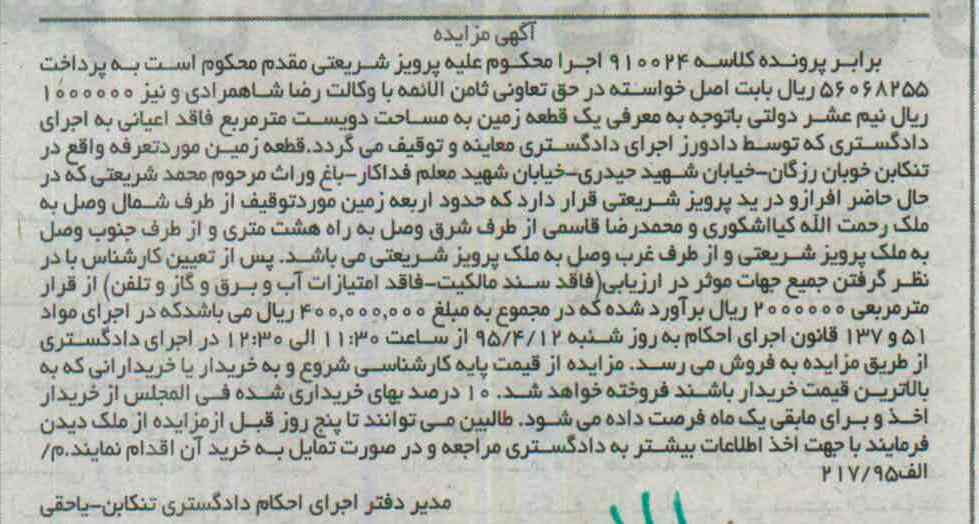 آگهی مزایده
برابر پرونده کلاسه ۹۱۰۰۲۴ اجرا محکوم علیه پرویز شریعتی مقدم محکوم است به پرداخت
۵۶۰۶۸۲۵۵ ریال بابت اصل خواسته در حق تعاونی ثامن الائمه با وکالت رضا شاهمرادی و نیز ۱۰۰۰۰۰۰
ریال نیم عشر دولتی باتوجه به معرفی یک قطعه زمین به مساحت دویست مترمربع فاقد اعیانی به اجرای
دادگستری که توسط دادورز اجرای دادگستری معاینه و توقیف می گردد.قطعه زمین موردتعرفه واقع در
تنکابن خوبان رزگان-خیابان شهید حیدری-خیابان شهید معلم فداکار-باغ وراث مرحوم محمد شریعتی که در
حال حاضر افرازو در ید پرویز شریعتی قرار دارد که حدود اربعه زمین موردتوقیف از طرف شمال وصل به
ملک رحمت الله کیااشکوری و محمدرضا قاسمی از طرف شرق وصل به راه هشت متری و از طرف جنوب وصل
به ملک پرویز شریعتی و از طرف غرب وصل به ملک پرویز شریعتی می باشد. پس از تعیین کارشناس با در
نظر گرفتن جمیع جهات موثر در ارزیابی(فاقد سند مالکیت-فاقد امتیازات آب و برق و گاز و تلفن) از قرار
مترمربعی ۲۰۰۰۰۰۰ ریال برآورد شده که در مجموع به مبلغ ۴۰۰,۰۰۰,۰۰۰ ریال می باشدکه در اجرای مواد
۵۱ و ۱۳۷ قانون اجرای احکام به روز شنبه ۹۵/۴/۱۲ از ساعت ۱۱:۳۰ الی ۱۲:۳۰ در اجرای دادگستری
از طریق مزایده به فروش می رسد. مزایده از قیمت پایه کارشناسی شروع و به خریدار یا خریدارانی که به
بالاترین قیمت خریدار باشند فروخته خواهد شد. ۱۰ درصد بهای خریداری شده فی المجلس از خریدار
اخذ و برای مابقی یک ماه فرصت داده می شود. طالبین می توانند تا پنج روز قبل ازمزایده از ملک دیدن
فرمایند با جهت اخذ اطلاعات بیشتر به دادگستری مراجعه و در صورت تمایل به خرید آن اقدام نمایند.م/
الف۲۱۷/۹۵
مدیر دفتر اجرای احکام دادگستری تنکابن-یاحقی